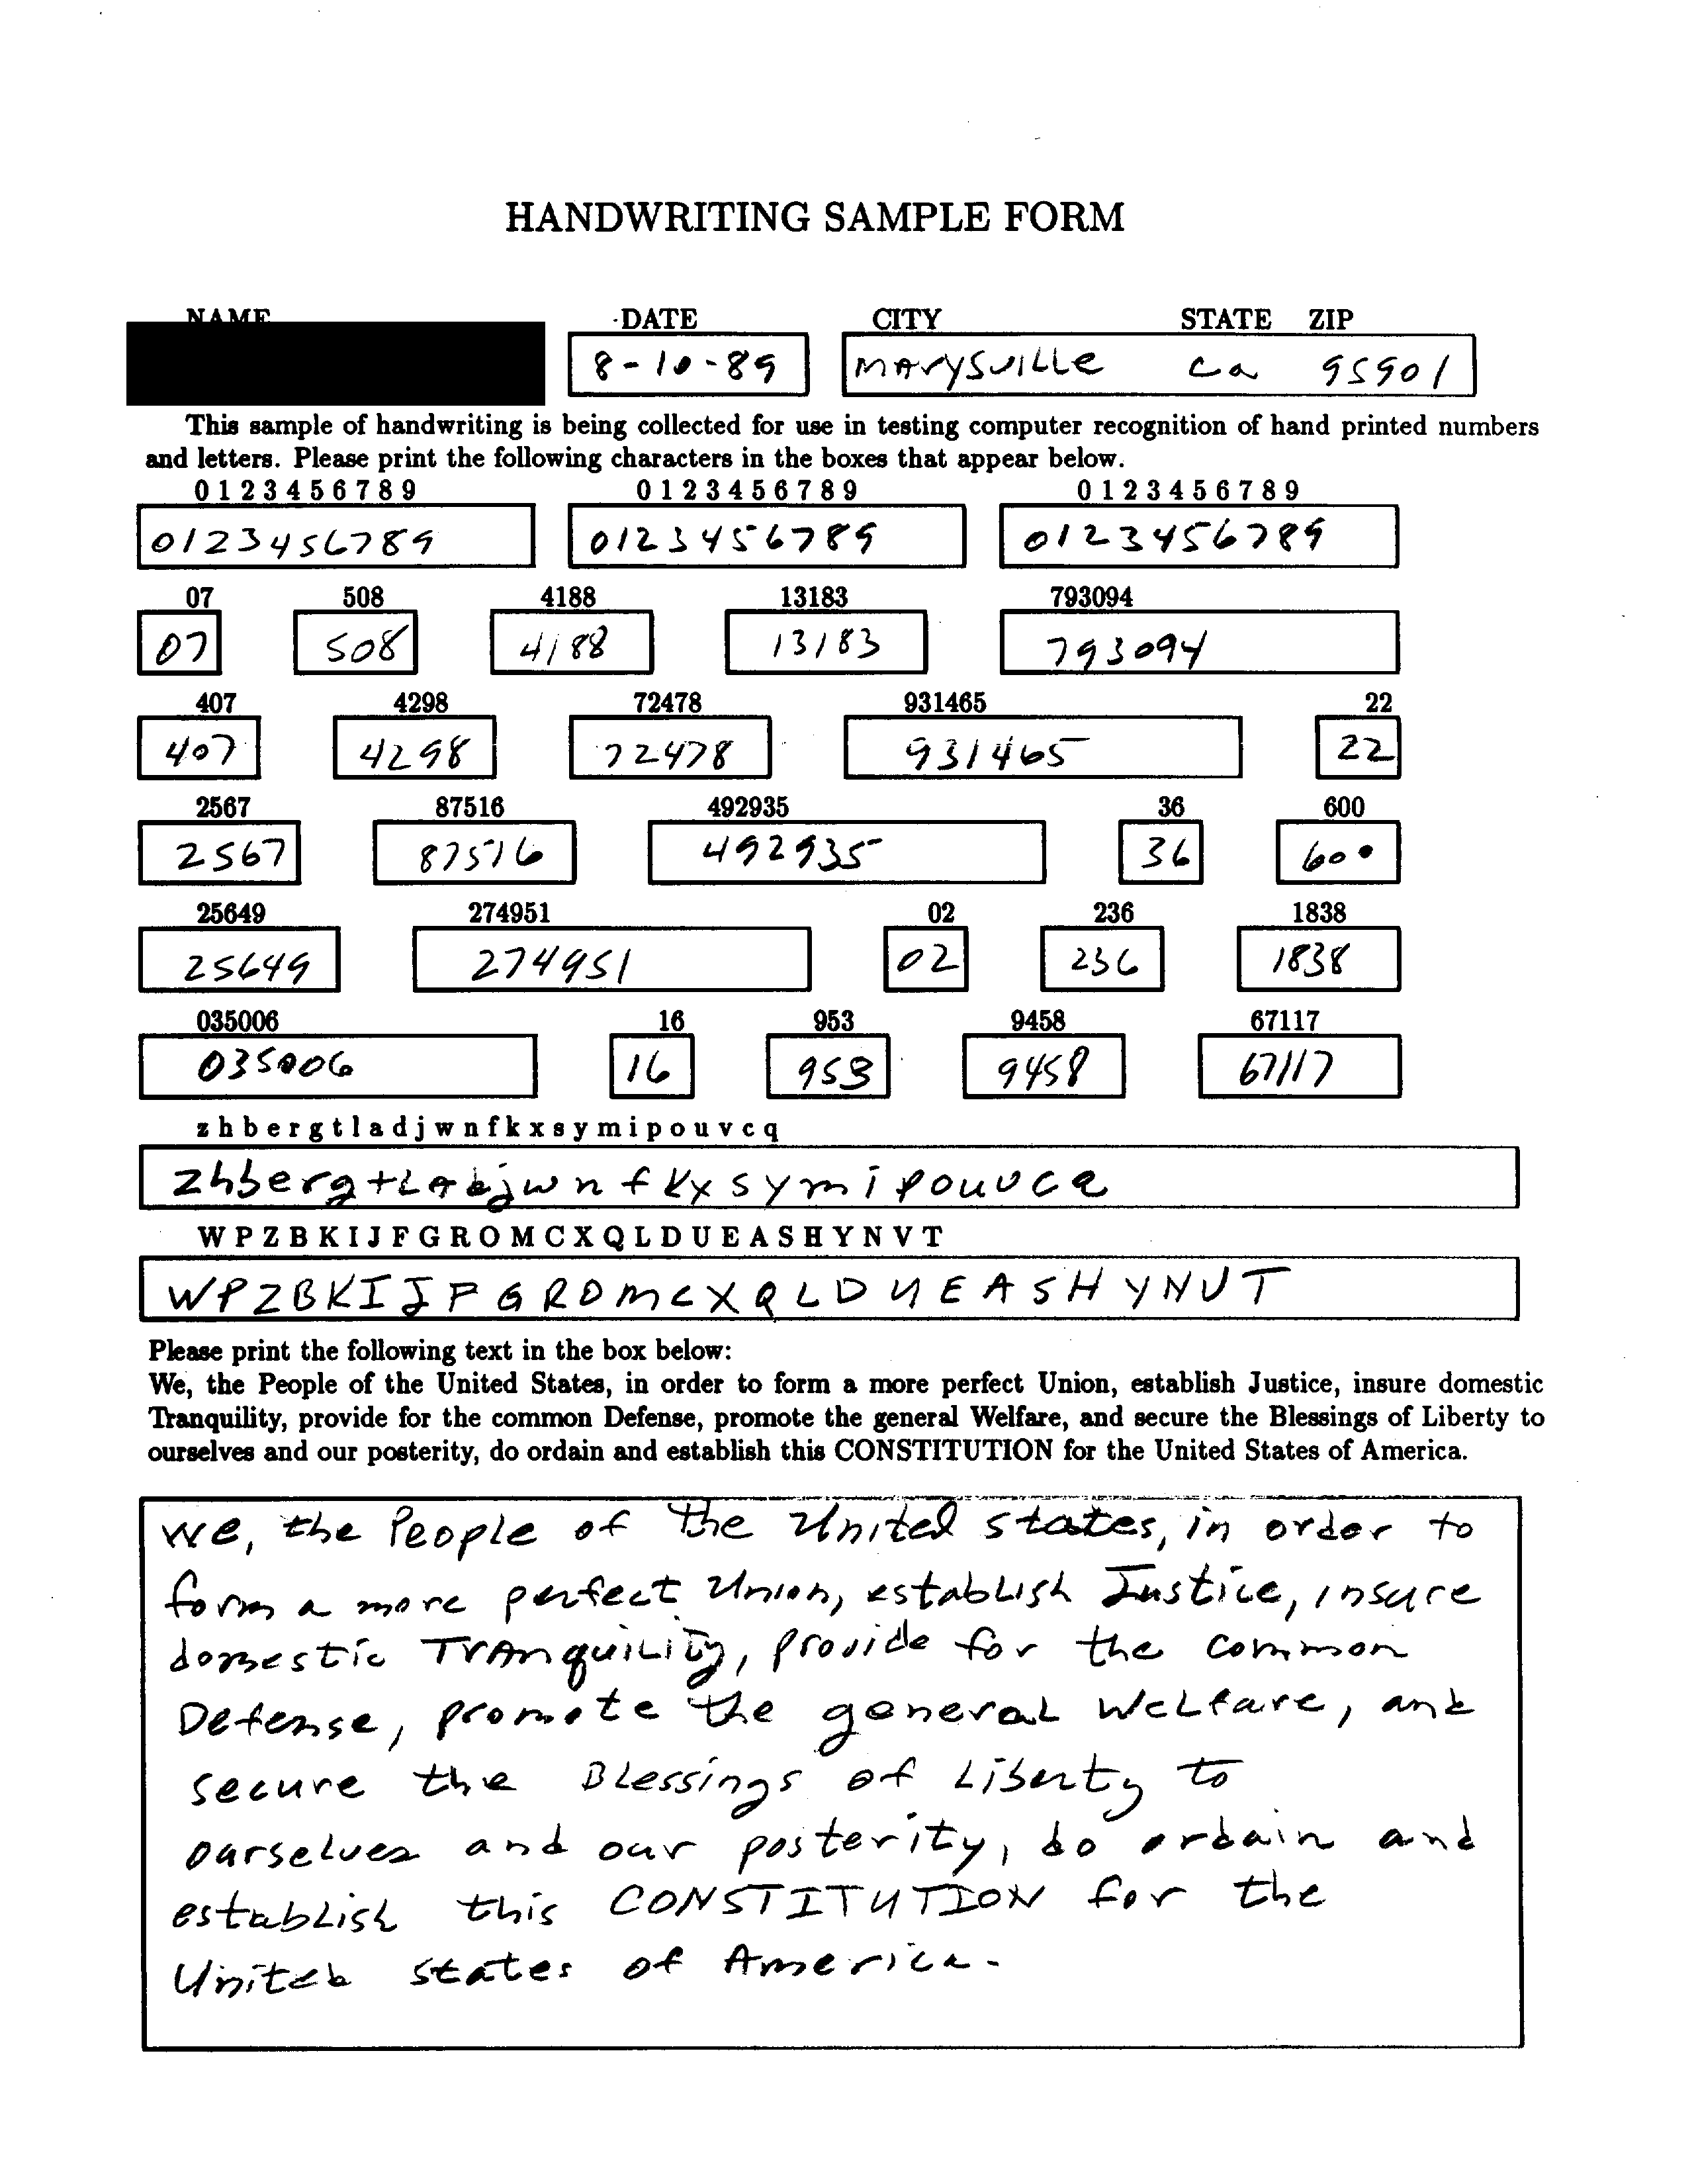 HANDWRITING SAMPLE FORM
NAME DATE CITY STATE ZIP
8-10-89 MArysviLLe Ca 95901
This sample of handwriting is being collected for use in testing computer recognition of hand printed numbers
and letters. Please print the following characters in the boxes that appear below.
0 1 2 3 4 5 6 7 8 9 0 1 2 3 4 5 6 7 8 9 0 1 2 3 4 5 6 7 8 9
0123456789 0123456789 0123456789
07 508 4188 13183 793094
07 508 4188 13183 793094
407 4298 72478 931465 22
407 4298 72478 931465 22
2567 87516 492935 36 600
2567 87516 492935 36 600
25649 274951 02 236 1838
25649 274951 02 236 1838
035006 16 953 9458 67117
035006 16 953 9458 67117
z h b e r g t l a d j w n f k x s y m i p o u v c q
zhbergtLadjwnfkxsymipouvcq
W P Z B K I J F G R O M C X Q L D U E A S H Y N V T
WPZBKIJFGROMCXQLDUEASHYNVT
Please print the following text in the box below:
We, the People of the United States, in order to form a more perfect Union, establish Justice, insure domestic
Tranquility, provide for the common Defense, promote the general Welfare, and secure the Blessings of Liberty to
ourselves and our posterity, do ordain and establish this CONSTITUTION for the United States of America.
We, the People of the United states, in order to
form a more perfect Union, establish Justice, insure
domestic Tranquility, provide for the common
Defense, promote the general Welfare, and
secure the Blessings of Liberty to
ourselves and our posterity, do ordain and
establish this CONSTITUTION for the
United states of America.